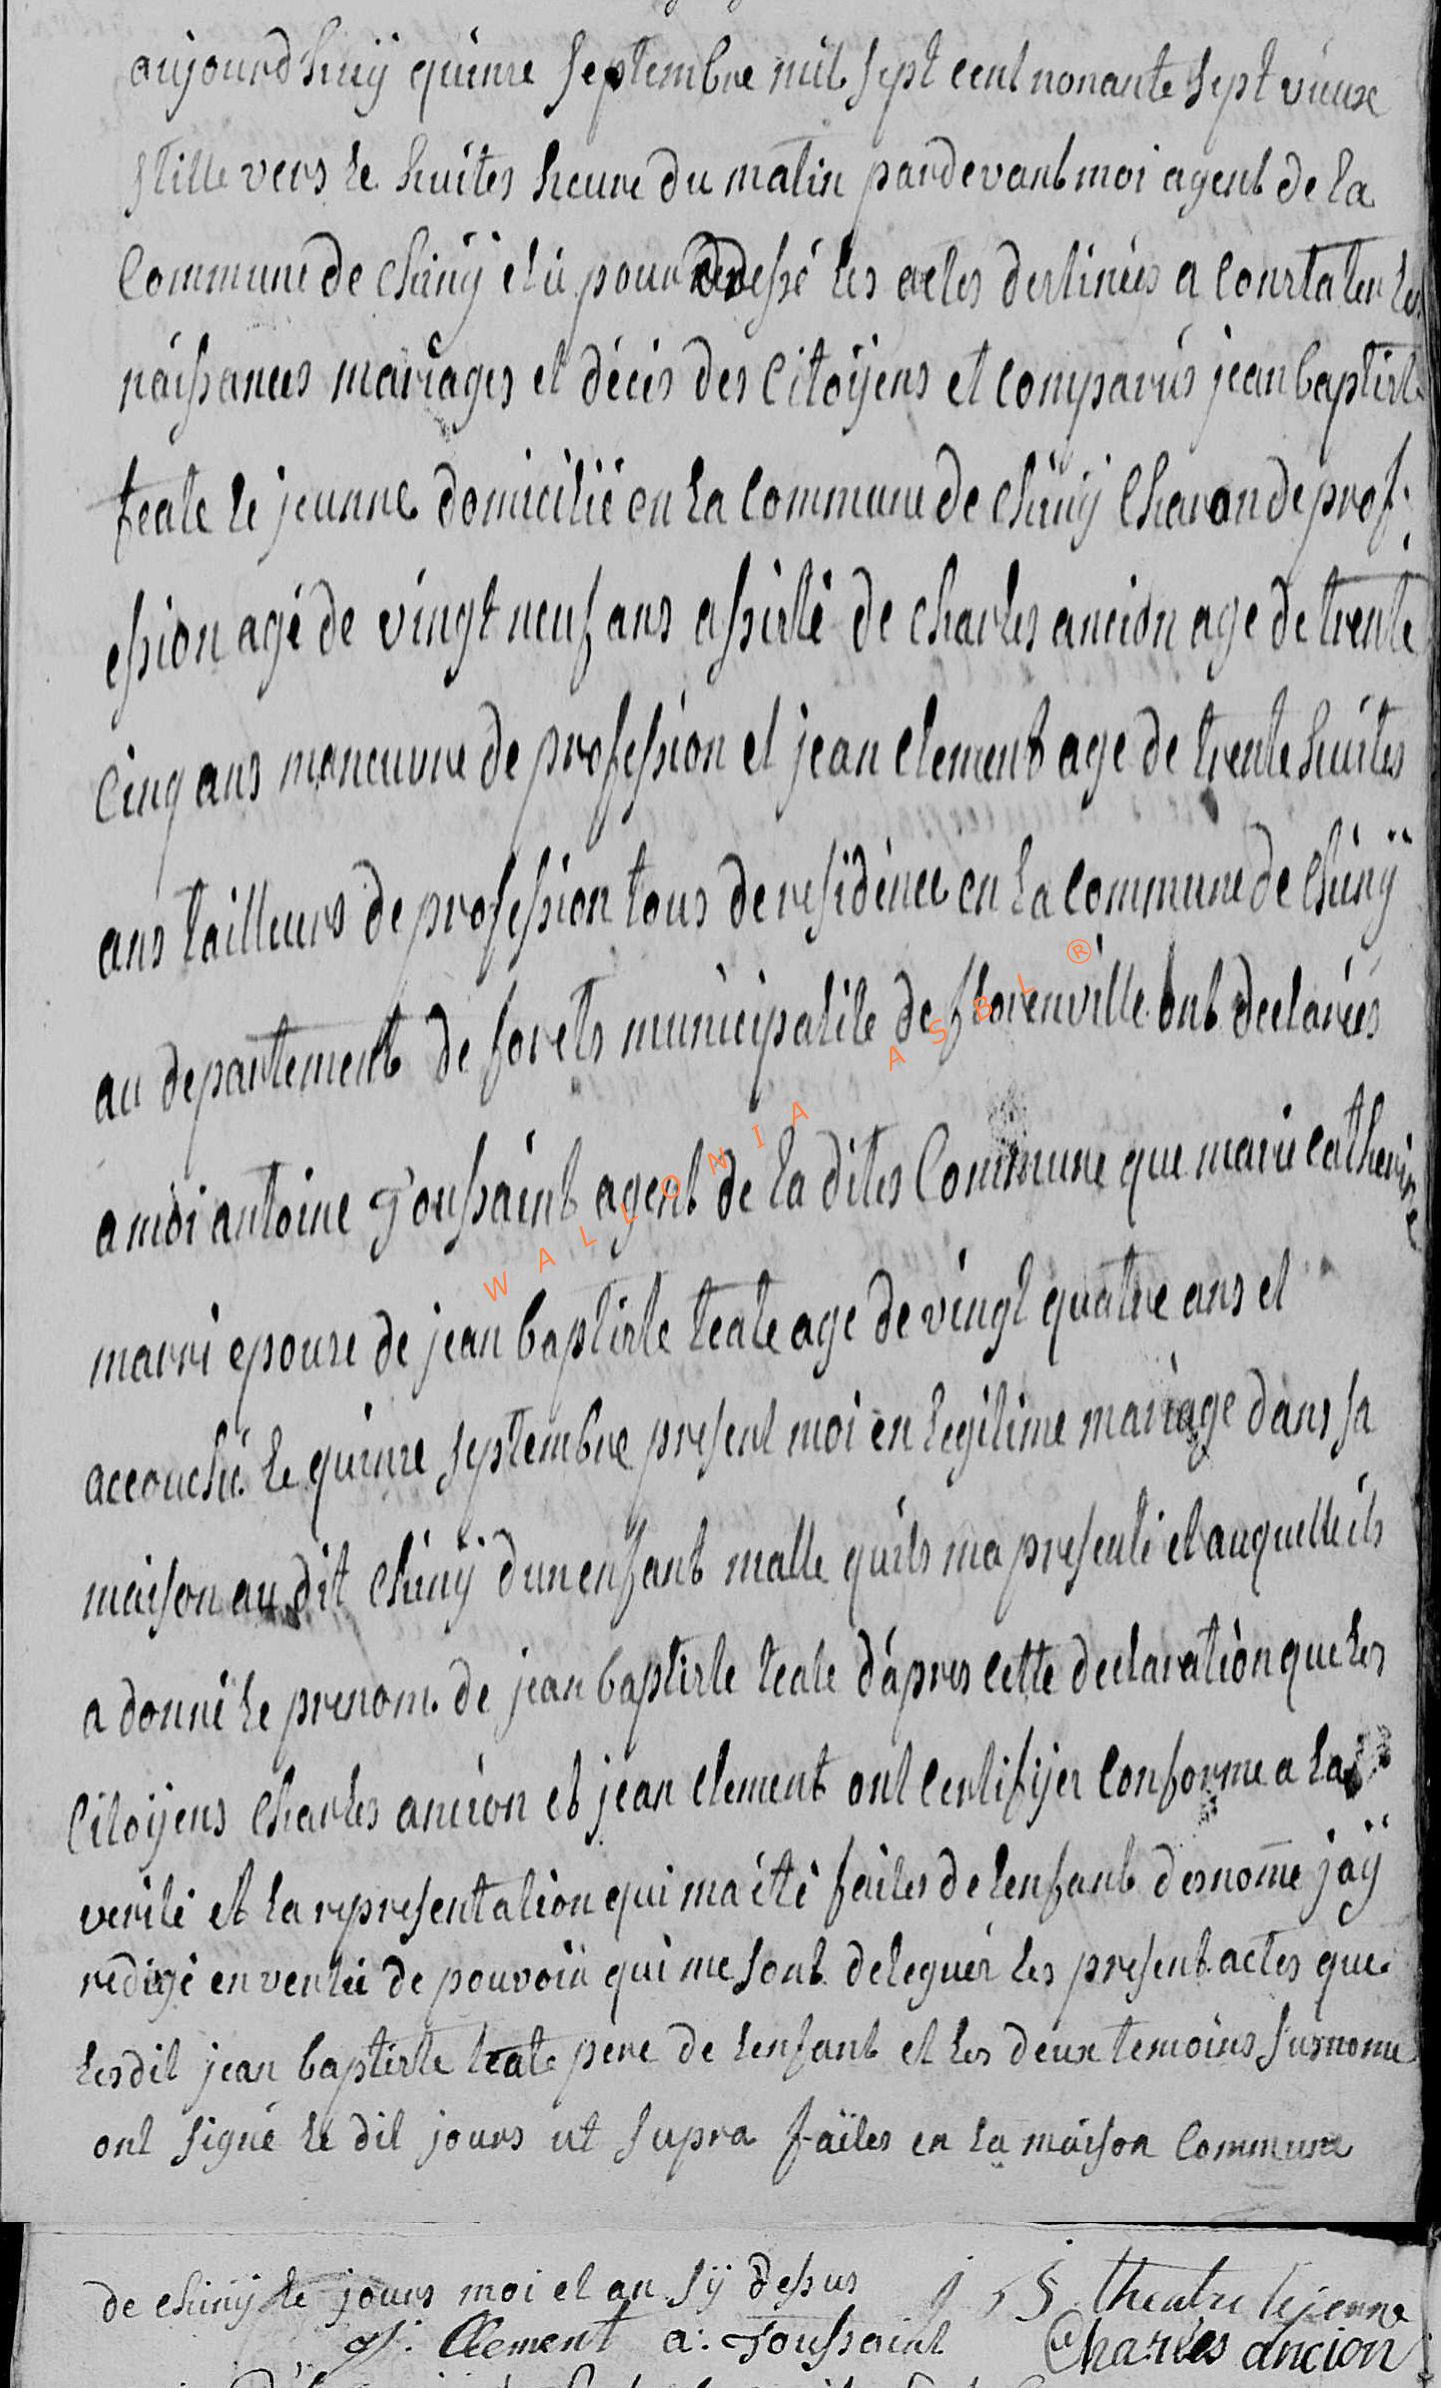 aujourdhuÿ quinre septembre mil sept cent nonante sept vieux
stille vers le huites heure du matin pardevant moi agent de la
Commune de chinÿ elu pour redessé les actes destinées a constater les
naissances mariages et décès des Citoÿens et comparus jean baptiste
teate le jeunne domicilié en la commune de chinÿ Charon de prof
ession agé de vingt neuf ans assisté de charles ancion age de trente
Cinq ans maneuvre de profession et jean clement age de trente huites
ans tailleurs de profession tous de residence en la commune de chinÿ
au departement de forets municipalite de florenville ont declarées
a moi antoine Toussaint agent de la dites Commune que marie catherine
marri epouse de jean baptiste teate age de vingt quatre ans et
accouché le quinre septembre present moi en legitime mariage dans sa
maison au dit chinÿ dun enfant malle quils ma presenté et auquelle ils
a donné le prenom de jean baptiste teate d'apres cette declaration que les
Citoÿens Charles ancion et jean clement ont certifijer conforme a la
verité et la representation qui ma été faites de lenfant desnom̄e jaÿ
redigé en vertué de pouvoir qui me sont deleguér les present actes que
lesdit jean baptiste teate pere de lenfant et les deux temoins surnome
ont signé le dit jours ut supra faites en la maison commune
de chinÿ le jours moi et an sÿ dessus
J: Clement a: Toussaint
theatre le jenne
Charles ancion
WALLONIA ASBL ®